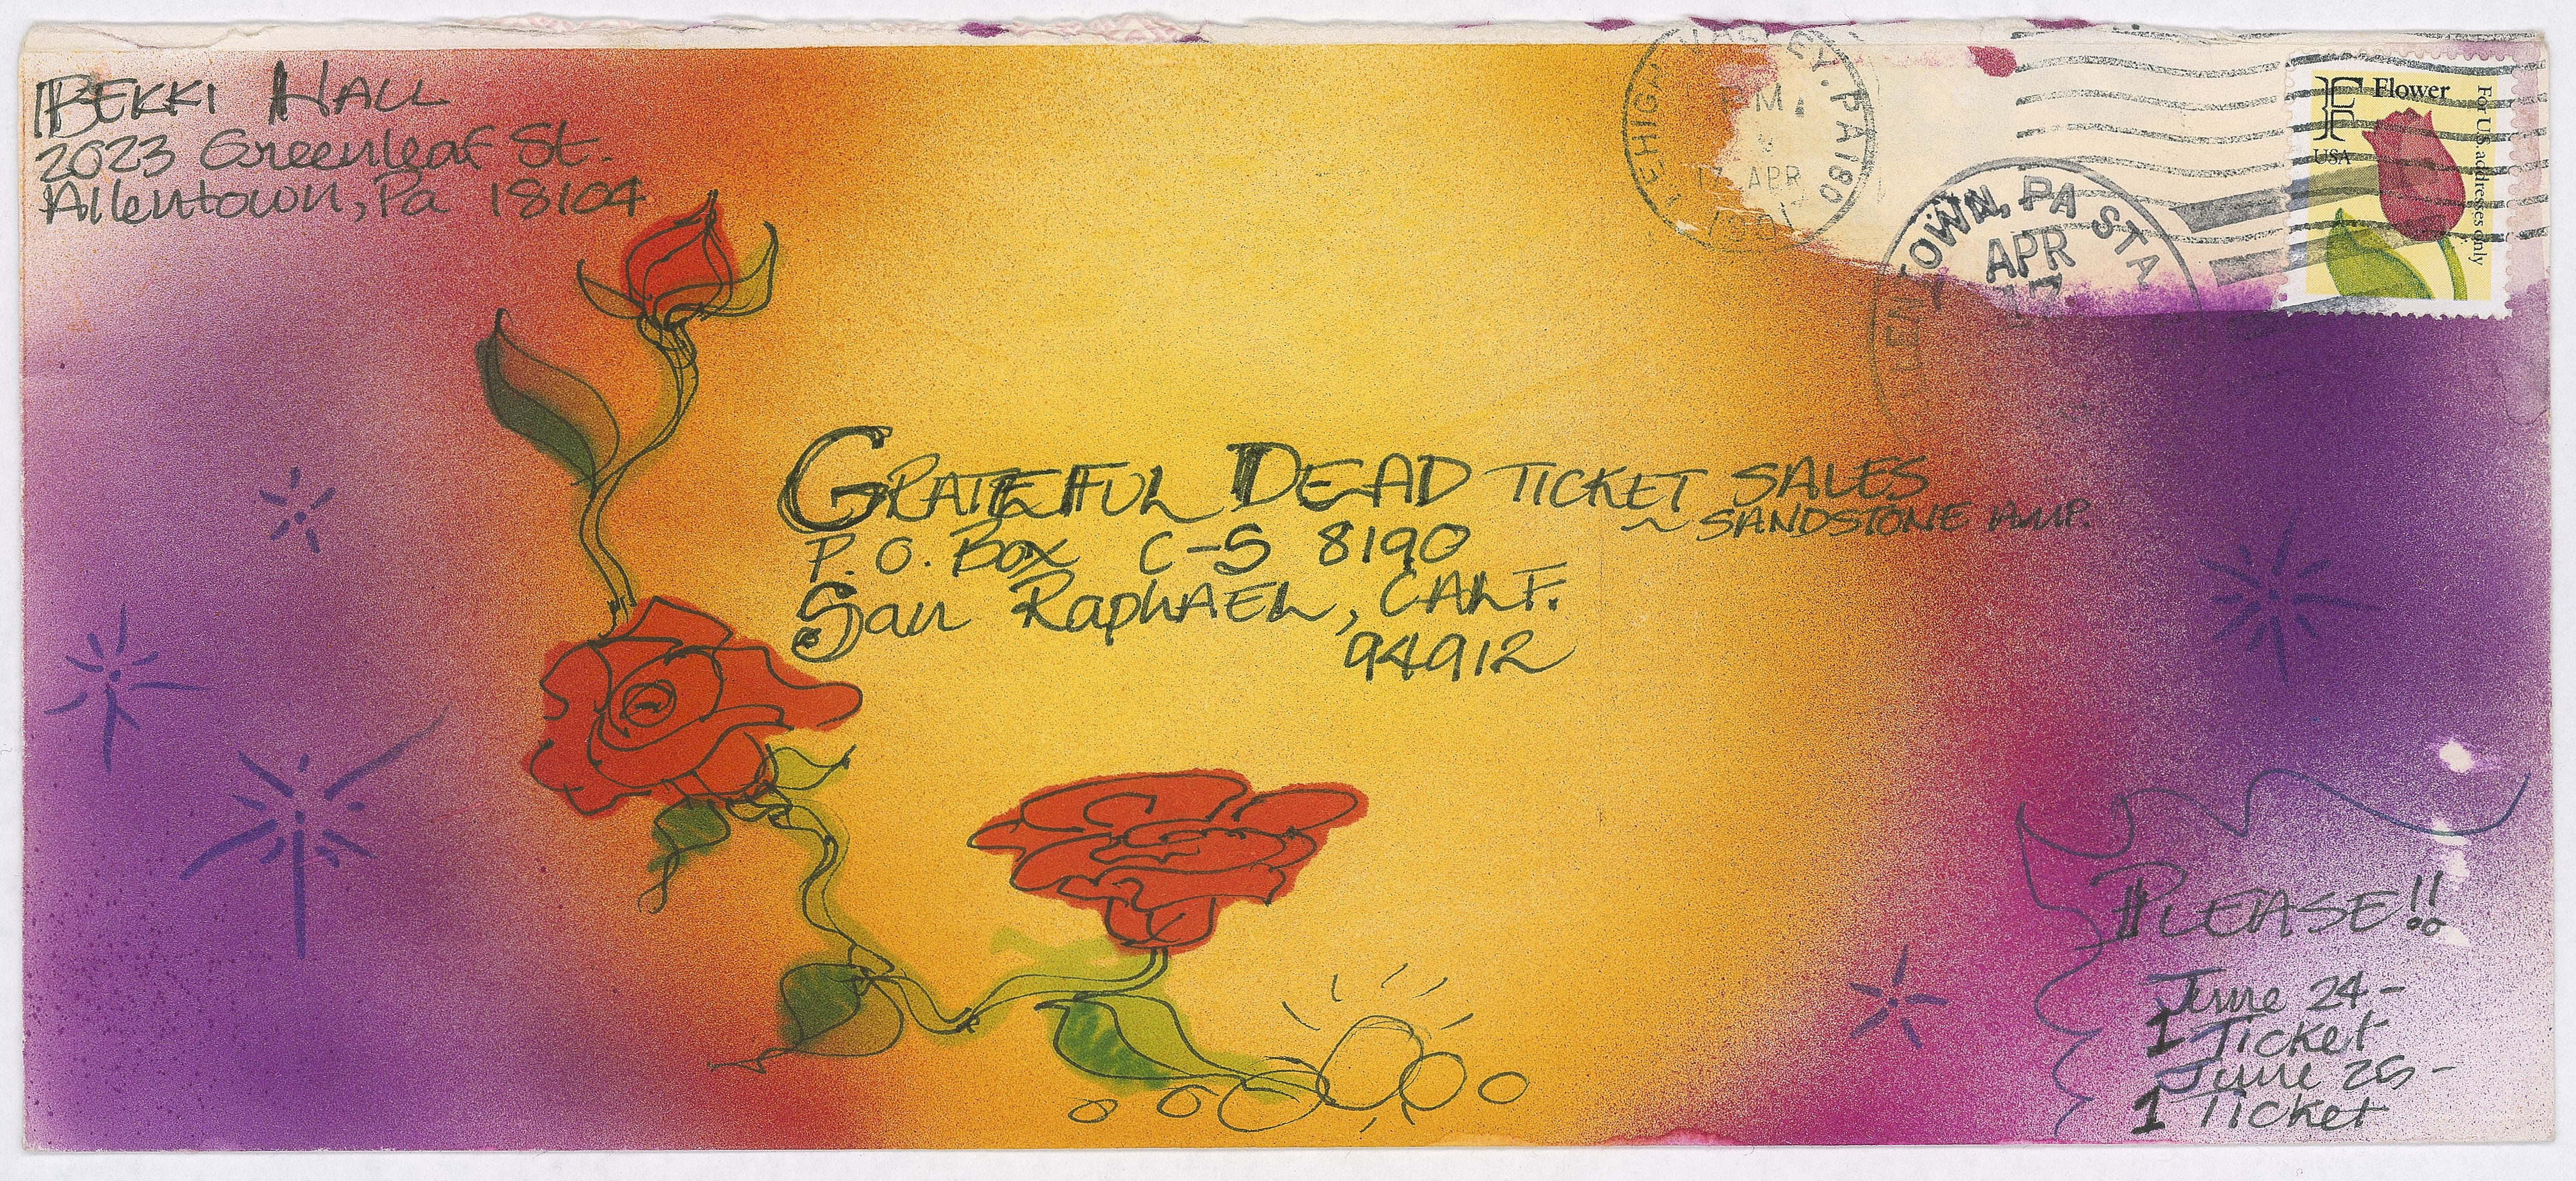 BEKKI HALL
2023 Greenleaf St.
Allentown, Pa 18104
LEHIGH VALLEY, PA 180
PM
17 APR
ALLENTOWN, PA STA
APR
17
F Flower
USA
For U.S. addresses only
GRATEFUL DEAD TICKET SALES
~ SANDSTONE AMP.
P. O. Box C-S 8190
San RaphAEL, CALF.
94912
PLEASE!!
June 24-
1 Ticket
June 25-
1 Ticket